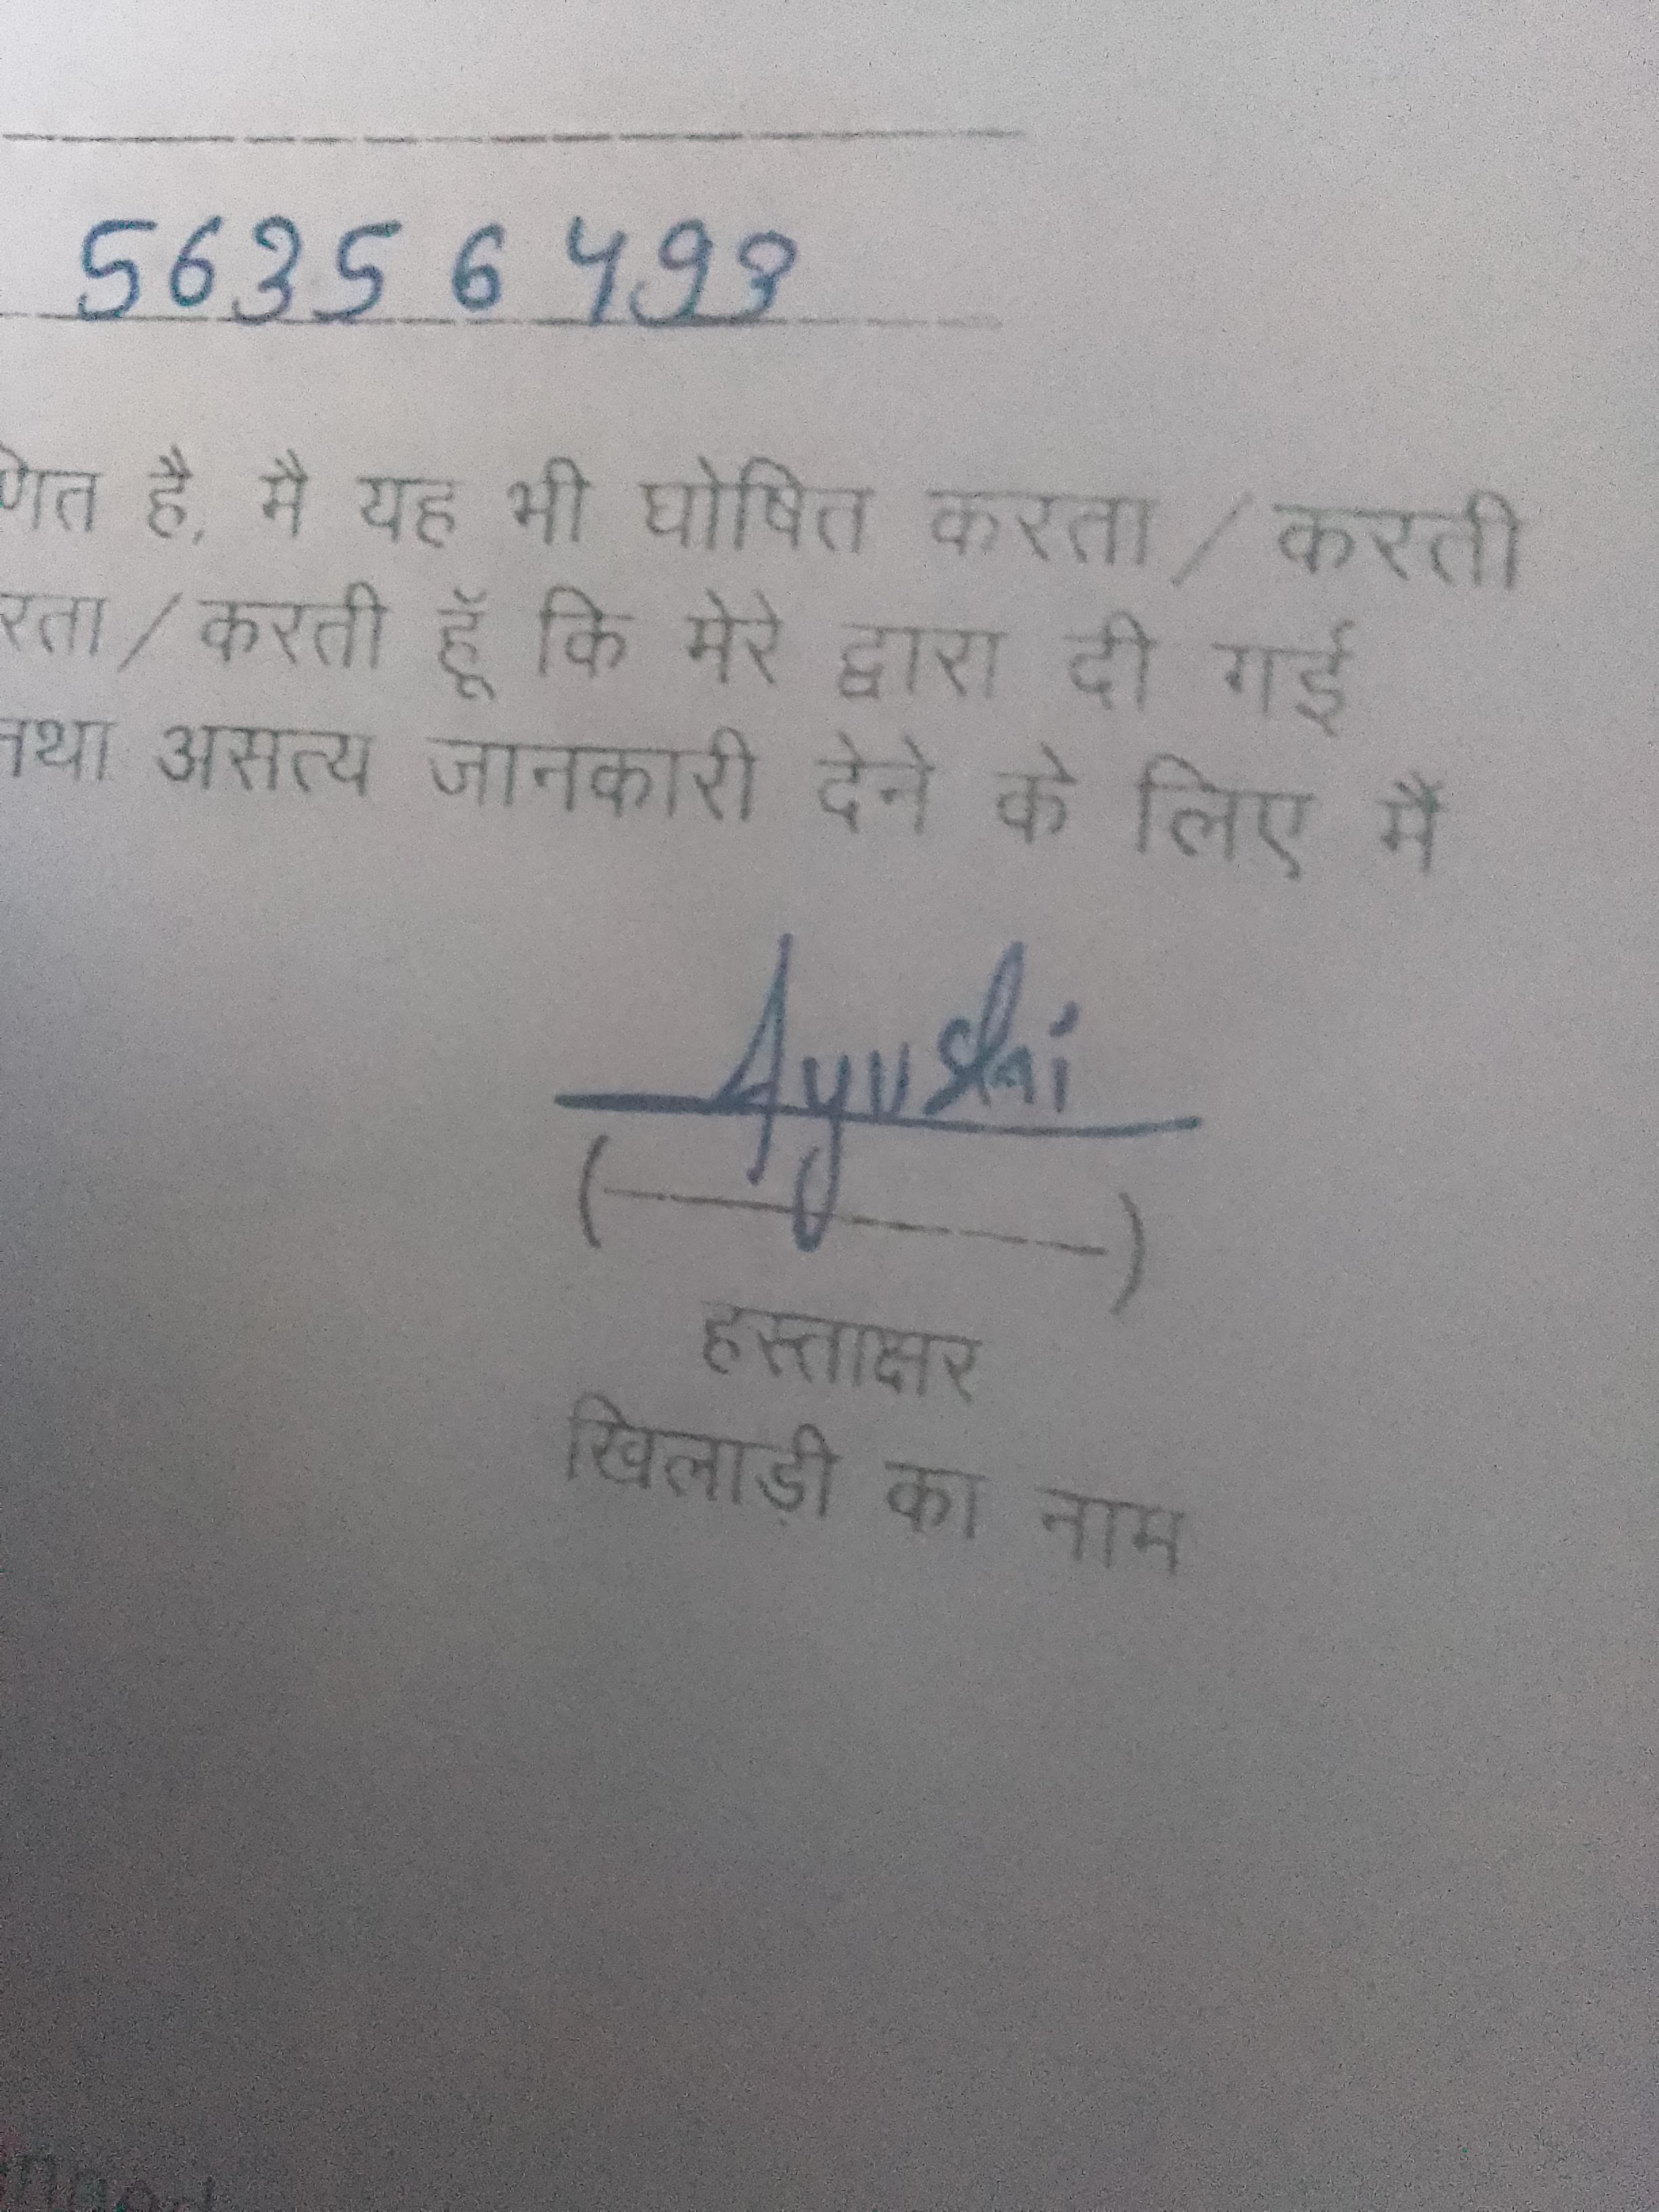 5635 6493
है, मै यह भी घोषित करता / करती
रता / करती हूँ कि मेरे द्वारा दी गई
तथा असत्य जानकारी देने के लिए मैं
Ayushi
(----------)
हस्ताक्षर
खिलाड़ी का नाम